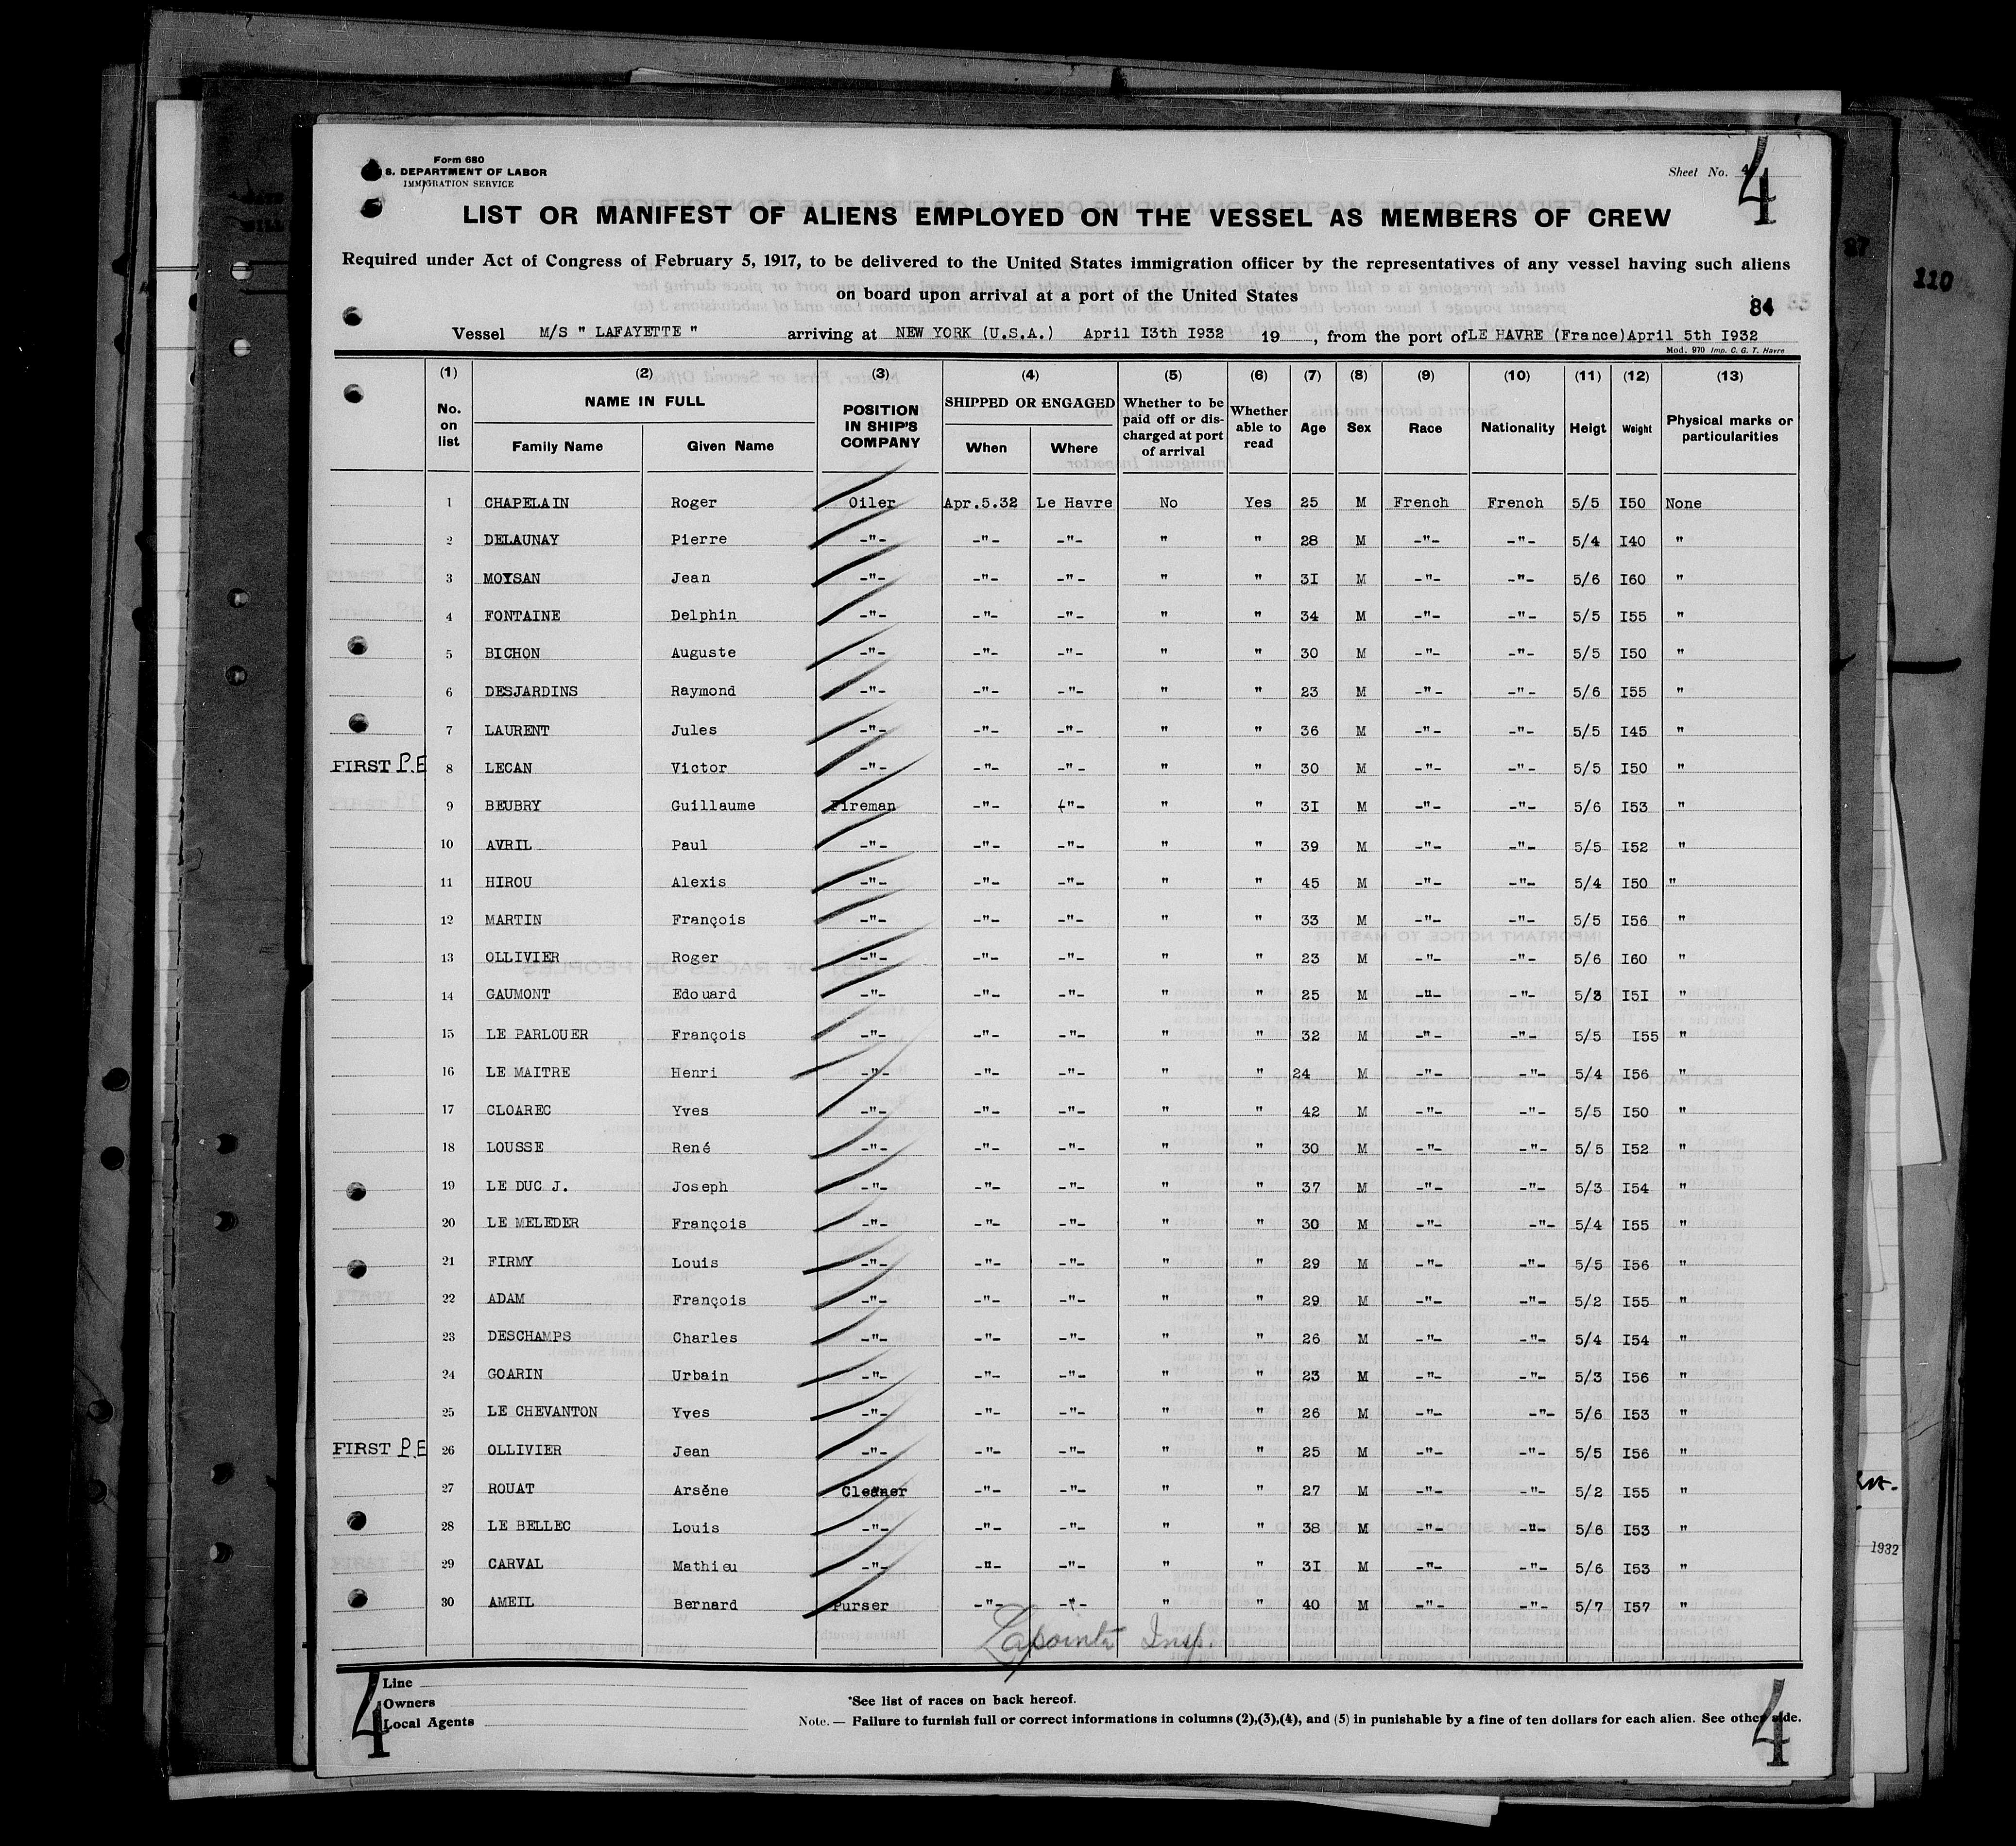 Form 680
S. DEPARTMENT OF LABOR
IMMIGRATION SERVICE
Sheet No. 4
4
LIST OR MANIFEST OF ALIENS EMPLOYED ON THE VESSEL AS MEMBERS OF CREW
Required under Act of Congress of February 5, 1917, to be delivered to the United States immigration officer by the representatives of any vessel having such aliens
on board upon arrival at a port of the United States
84
110
87
Vessel M/S " LAFAYETTE " arriving at NEW YORK (U.S.A.) April I3th I932 19 , from the port of LE HAVRE (France) April 5th I932
Mod. 970 Imp. C. G. T. Havre
(1) (2) (3) (4) (5) (6) (7) (8) (9) (10) (11) (12) (13)
No. on list NAME IN FULL Family Name Given Name POSITION IN SHIP'S COMPANY SHIPPED OR ENGAGED When Where Whether to be paid off or discharged at port of arrival Whether able to read Age Sex Race Nationality Heigt Weight Physical marks or particularities
1 CHAPELAIN Roger Oiler Apr.5.32 Le Havre No Yes 25 M French French 5/5 I50 None
2 DELAUNAY Pierre -"- -"- -"- " " 28 M -"- -"- 5/4 I40 "
3 MOYSAN Jean -"- -"- -"- " " 3I M -"- -"- 5/6 I60 "
4 FONTAINE Delphin -"- -"- -"- " " 34 M -"- -"- 5/5 I55 "
5 BICHON Auguste -"- -"- -"- " " 30 M -"- -"- 5/5 I50 "
6 DESJARDINS Raymond -"- -"- -"- " " 23 M -"- -"- 5/6 I55 "
7 LAURENT Jules -"- -"- -"- " " 36 M -"- -"- 5/5 I45 "
FIRST P.E 8 LECAN Victor -"- -"- -"- " " 30 M -"- -"- 5/5 I50 "
9 BEUBRY Guillaume Fireman -"- -"- " " 3I M -"- -"- 5/6 I53 "
10 AVRIL Paul -"- -"- -"- " " 39 M -"- -"- 5/5 I52 "
11 HIROU Alexis -"- -"- -"- " " 45 M -"- -"- 5/4 I50 "
12 MARTIN François -"- -"- -"- " " 33 M -"- -"- 5/5 I56 "
13 OLLIVIER Roger -"- -"- -"- " " 23 M -"- -"- 5/6 I60 "
14 GAUMONT Edouard -"- -"- -"- " " 25 M -"- -"- 5/3 I5I "
15 LE PARLOUER François -"- -"- -"- " " 32 M -"- -"- 5/5 I55 "
16 LE MAITRE Henri -"- -"- -"- " " 24 M -"- -"- 5/4 I56 "
17 CLOAREC Yves -"- -"- -"- " " 42 M -"- -"- 5/5 I50 "
18 LOUSSE René -"- -"- -"- " " 30 M -"- -"- 5/5 I52 "
19 LE DUC J. Joseph -"- -"- -"- " " 37 M -"- -"- 5/3 I54 "
20 LE MELEDER François -"- -"- -"- " " 30 M -"- -"- 5/4 I55 "
21 FIRMY Louis -"- -"- -"- " " 29 M -"- -"- 5/5 I56 "
22 ADAM François -"- -"- -"- " " 29 M -"- -"- 5/2 I55 "
23 DESCHAMPS Charles -"- -"- -"- " " 26 M -"- -"- 5/4 I54 "
24 GOARIN Urbain -"- -"- -"- " " 23 M -"- -"- 5/3 I56 "
25 LE CHEVANTON Yves -"- -"- -"- " " 26 M -"- -"- 5/6 I53 "
FIRST P.E 26 OLLIVIER Jean -"- -"- -"- " " 25 M -"- -"- 5/5 I56 "
27 ROUAT Arsène Cleaner -"- -"- " " 27 M -"- -"- 5/2 I55 "
28 LE BELLEC Louis -"- -"- -"- " " 38 M -"- -"- 5/6 I53 "
29 CARVAL Mathieu -"- -"- -"- " " 3I M -"- -"- 5/6 I53 "
1932
30 AMEIL Bernard Purser -"- -"- " " 40 M -"- -"- 5/7 I57 "
Lapointe Insp.
4 4
Line
Owners
Local Agents
*See list of races on back hereof.
Note. — Failure to furnish full or correct informations in columns (2),(3),(4), and (5) in punishable by a fine of ten dollars for each alien. See other side.